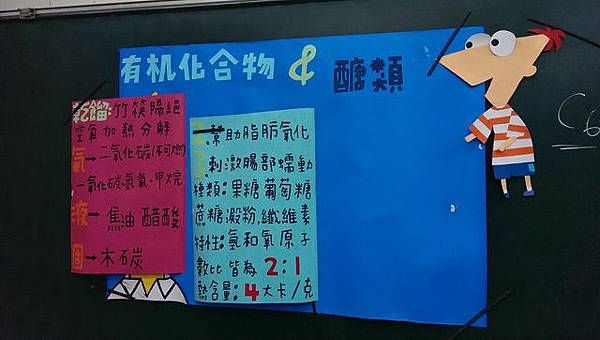 有机化合物 & 醣類
乾餾:竹筷隔絕
空氣加熱分解
氣→二氧化碳(不可燃)
一氧化碳、氫氣、甲烷
液→焦油 醋酸
固→木炭
2.幫助脂肪氧化
3.刺激腸部蠕動
種類:果糖 葡萄糖
蔗糖 澱粉、纖維素
特性:氫和氧原子
數比 皆為 2:1
熱含量:4大卡/克
C6